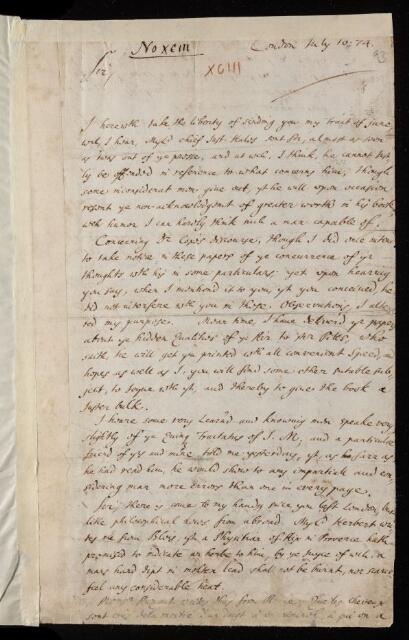 No XCIII London July 10. 74.
XCIII 93
Sir,
I herewith take the liberty of sending you my tract of
wch, I hear, Myld chief Just Hales sent for, almost as soon
as 'twas out of ye presse, and at wch, I think, he cannot
ly be offended in reference to what concerns him, though
some inconsiderat men give out, yt he will upon occasion
resent ye non-acknowledgment of greater worth in his book
wch humor I can hardly think such a man capable of.
Concerning Dr discourse, though I did once intend
to take notice in these papers of ye concurrence of yr
thoughts with his in some particulars; yet upon hearing
you say, when I mention'd it to you, yt you conceived he
did not interfere with you in those Observations, I alter
red my purpose. Mean time, I have deliver'd ye papers
about ye hidden Qualities of ye Air to Mr Pitts, who
saith, he will get ym printed with all convenient speed,
hopes as well as I, you will find some other sutable sub
ject, to joyne with yt, and thereby to give the book a
juster bulk.
I heare some very Learn'd and knowing men speake very
slightly of ye Tractates of J. M., and a particular
friend of yrs and mine told me yesterday, yt, as farre as
he had read him, he would show to any impartiall and con
sidering man more Errors than one in every page.
Sir, there is come to my hands since you left London
like philosophical news from abroad. Myld Herbert wri
tes me from Blois, yt a Physitian of Aix in Provence hath
promised to indicate an herbe to him, by ye juyce of wch a
mans hand dipt in molten lead shall not be burnt, nor scarce
feel any considerable heat.